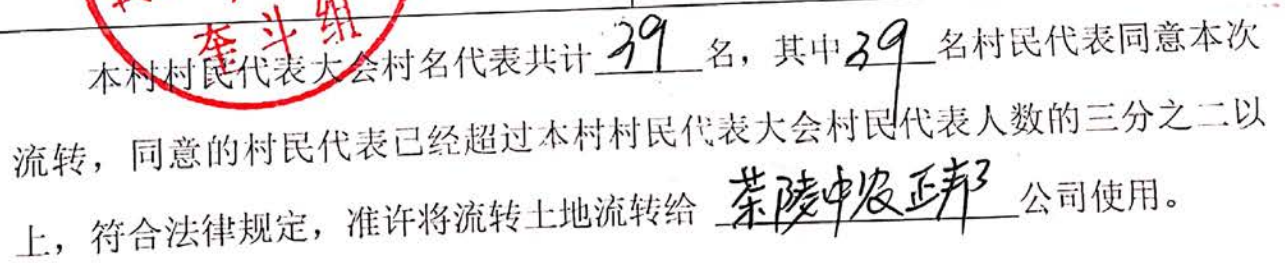 奎斗组
本村村民代表大会村名代表共计39名，其中39名村民代表同意本次
流转，同意的村民代表已经超过本村村民代表大会村民代表人数的三分之二以
上，符合法律规定，准许将流转土地流转给 茶陵中农正邦 公司使用。